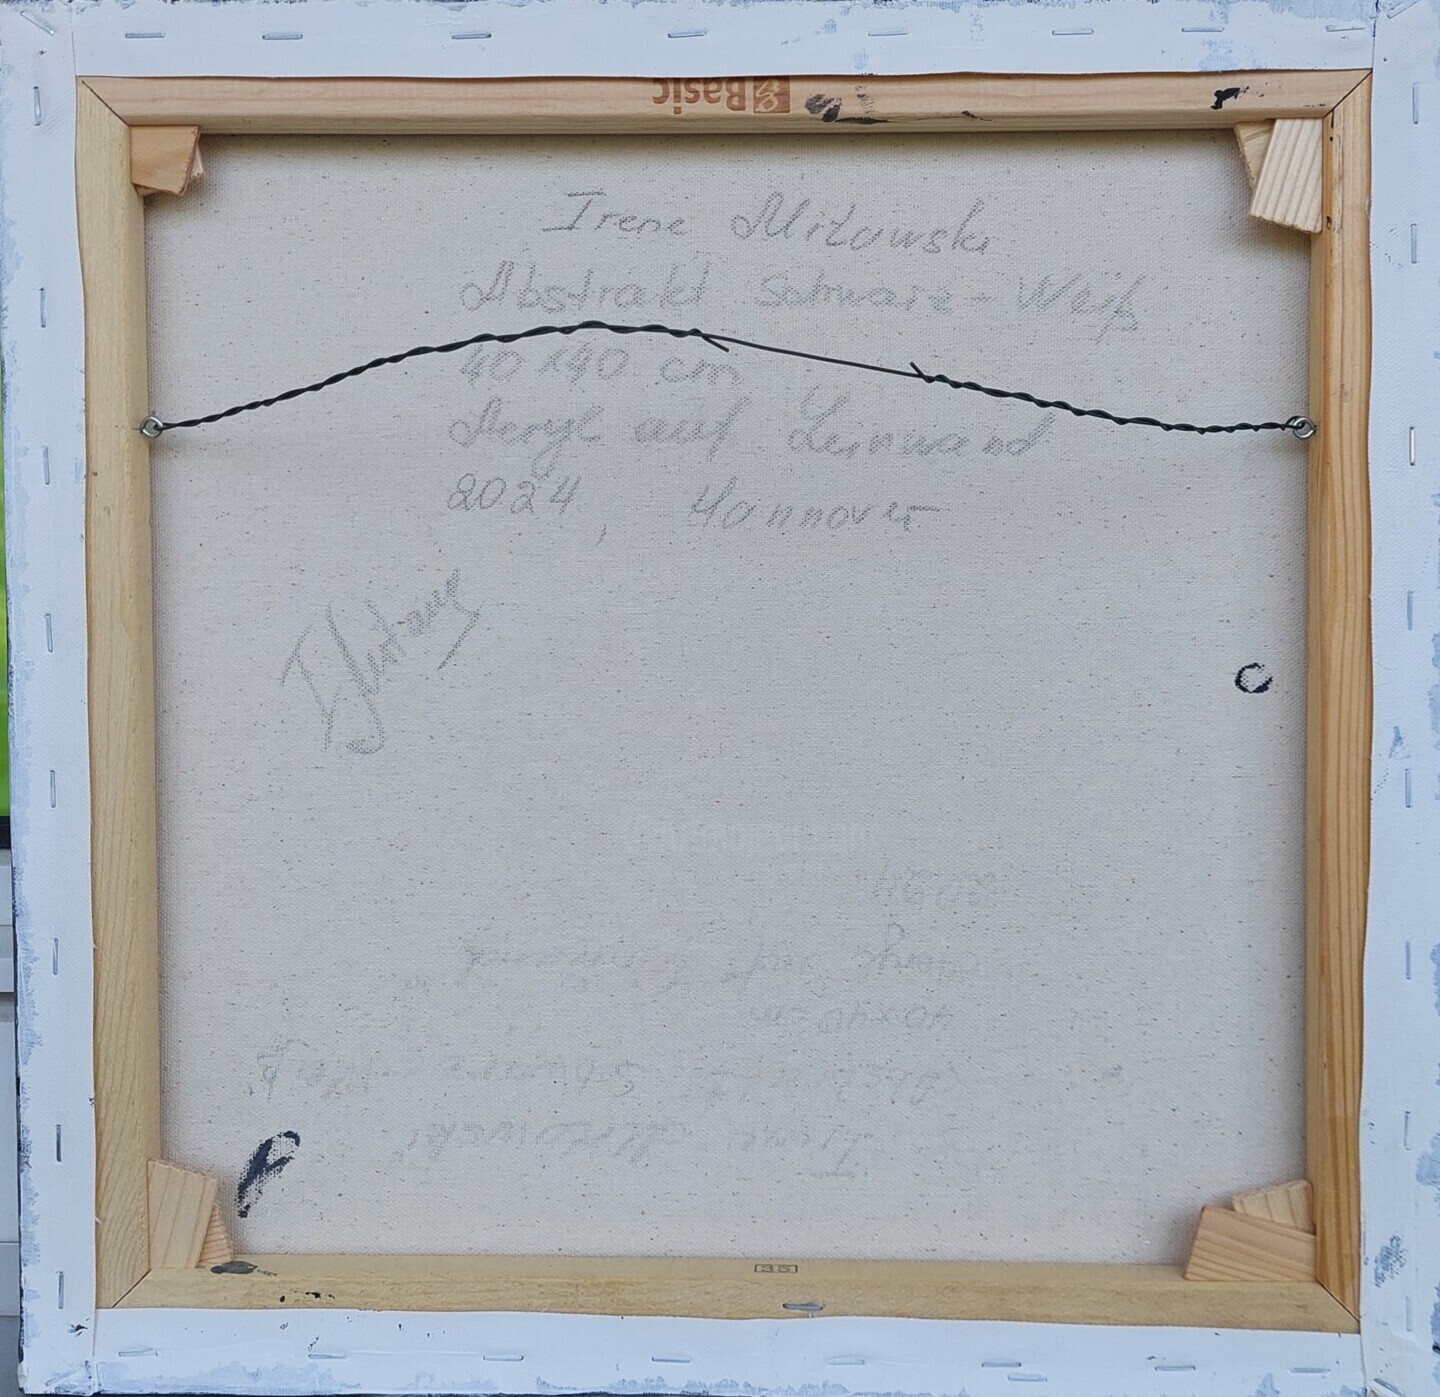 Basic
Irene Mitowski
Abstrakt Schwarz - Weiß
40 x 40 cm
Acryl auf Leinwand
2024, Hannover
35
2024
Acryl auf Leinwand
40x40 cm
Abstrakt Schwarz - Weiß
Irene